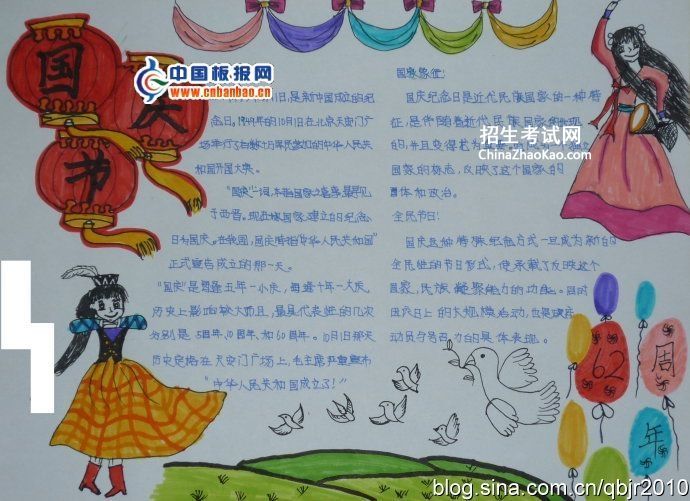 国庆节
中国板报网
www.cnbanbao.cn
月1日,是新中国成立的纪
念日。1949年的10月1日在北京天安门广
场举行了有数十万军民参加的中华人民共
和国开国大典。
"国庆"一词,本指国家之喜事,最早见
于西晋。现在被国家建立的纪念
日称国庆。在我国,国庆特指"中华人民共和国"
正式宣告成立的那一天。
"国庆"是逢五年一小庆,每逢十年一大庆。
历史上影响较大而且,最具代表性的几次
分别是5周年、10周年、和60周年。10月1日那天
历史定格在天安门广场上,毛主席严重宣布
"中华人民共和国成立了!"
国家象征:
国庆纪念日是近代民族国家的一种特
征,是伴随着近代民族国家的出现
的,并且变得尤为重要。
国家的标志,反映了这个国家的
国体和政治。
招生考试网
ChinaZhaoKao.com
全民节日:
国庆这种特殊纪念方式一旦成为新的
全民性的节日形式,便承载了反映这个
国家,民族凝聚能力的功能。同时
国庆日上的大规模活动,也是政府
动员与号召力的具体表现。
62周年
blog.sina.com.cn/qbjr2010